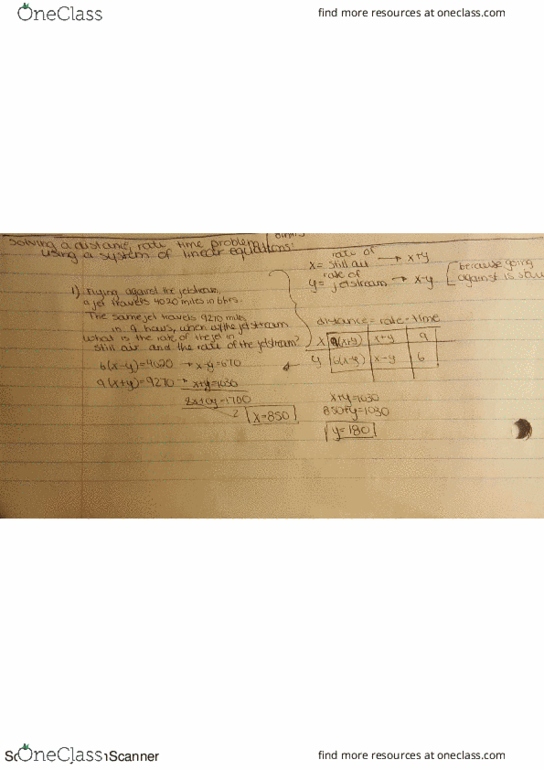 OneClass
find more resources at oneclass.com
Solving a distance, rate time problem
using a system of linear equations:
1) Flying against the jetstream,
a jet travels 4020 miles in 6hrs.
The same jet travels 9270 miles
in 9 hours, when w/ the jetstream
what is the rate of the jet in
still air and the rate of the jetstream?
6(x-y)=4020 → x-y=670
9(x+y)=9270 → x+y=1030
2x+0y=1700
2
x=850
rate of
x= still air → x+y
rate of
y= jetstream → x-y
because going
against is
distance = rate • time
x 9(x+y) x+y 9
y 6(x-y) x-y 6
x+y=1030
850+y=1030
y=180
OneClass
Scanner
find more resources at oneclass.com